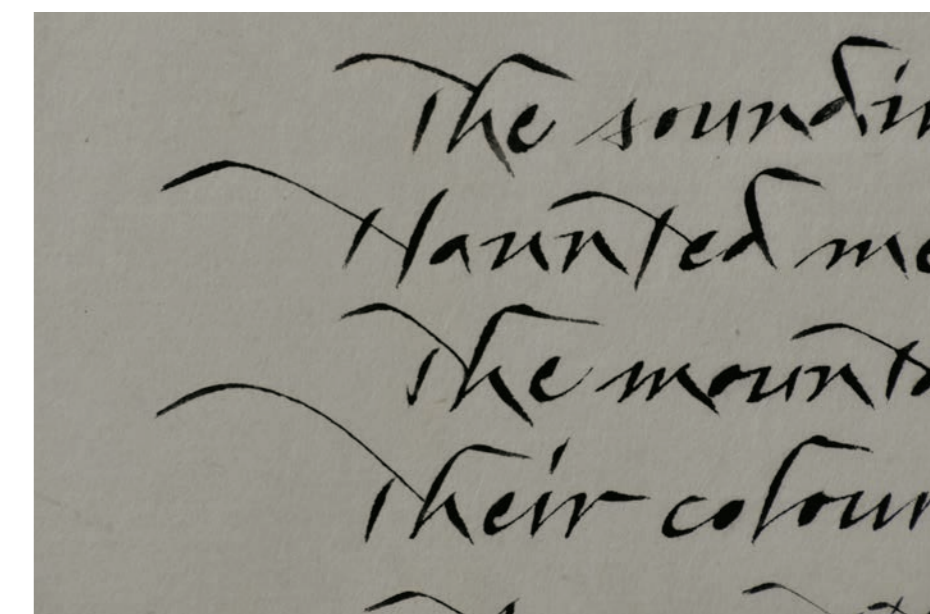 The soundin
Haunted me
The mounta
Their colour